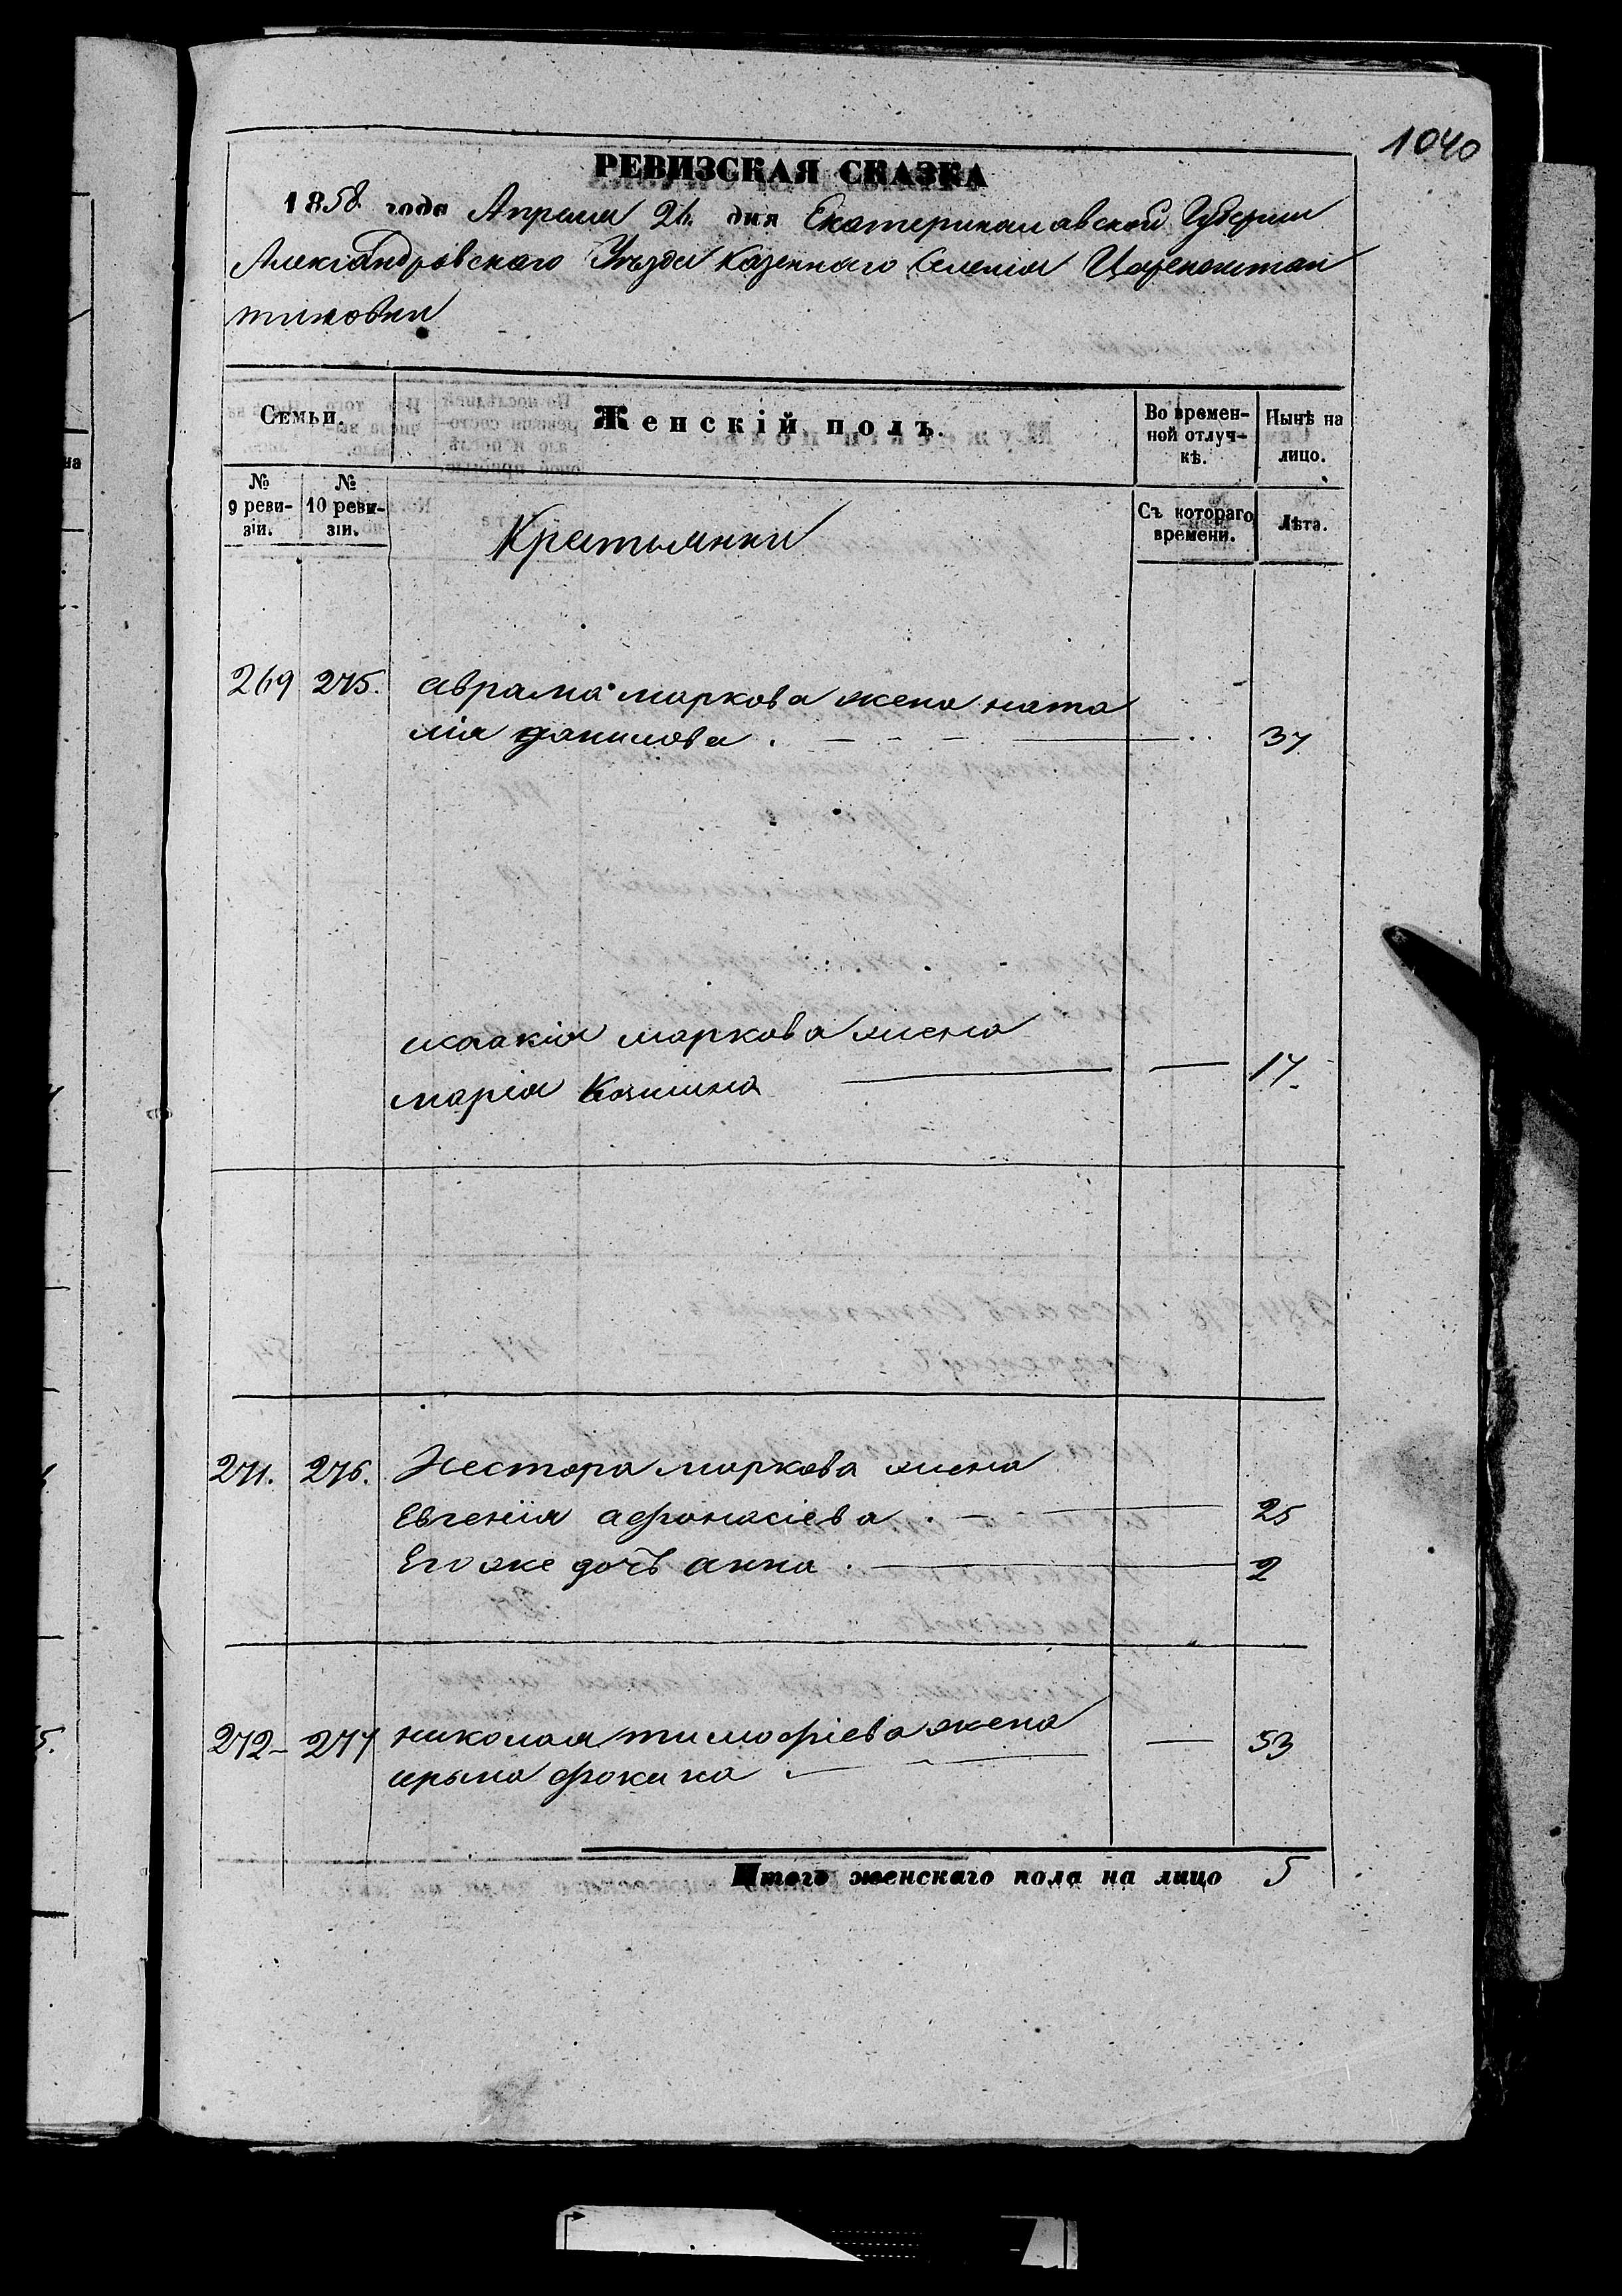 1040
РЕВИЗСКАЯ СКАЗКА
1858 года Апреля 26 дня Екатеринославской Губернии
Александровскаго Уѣзда Казеннаго Селенія Цареконстан
тиновки
Семьи.
Женскій полъ.
Во времен-
ной отлуч-
кѣ.
Нынѣ на
лицо.
№
9 реви-
зіи.
№
10 реви-
зіи.
Съ котораго
времени.
Лѣта.
Крестьянки
269 275. аврама маркова жена ната
лія данилова 37
исаакія маркова жена
марія 17.
271. 276. Нестора маркова жена
Евгенія афонасіева 25
Его же дочь анна 2
272 277 николая тимофіева жена 53
ирына фокина
Итого женскаго пола на лицо 5